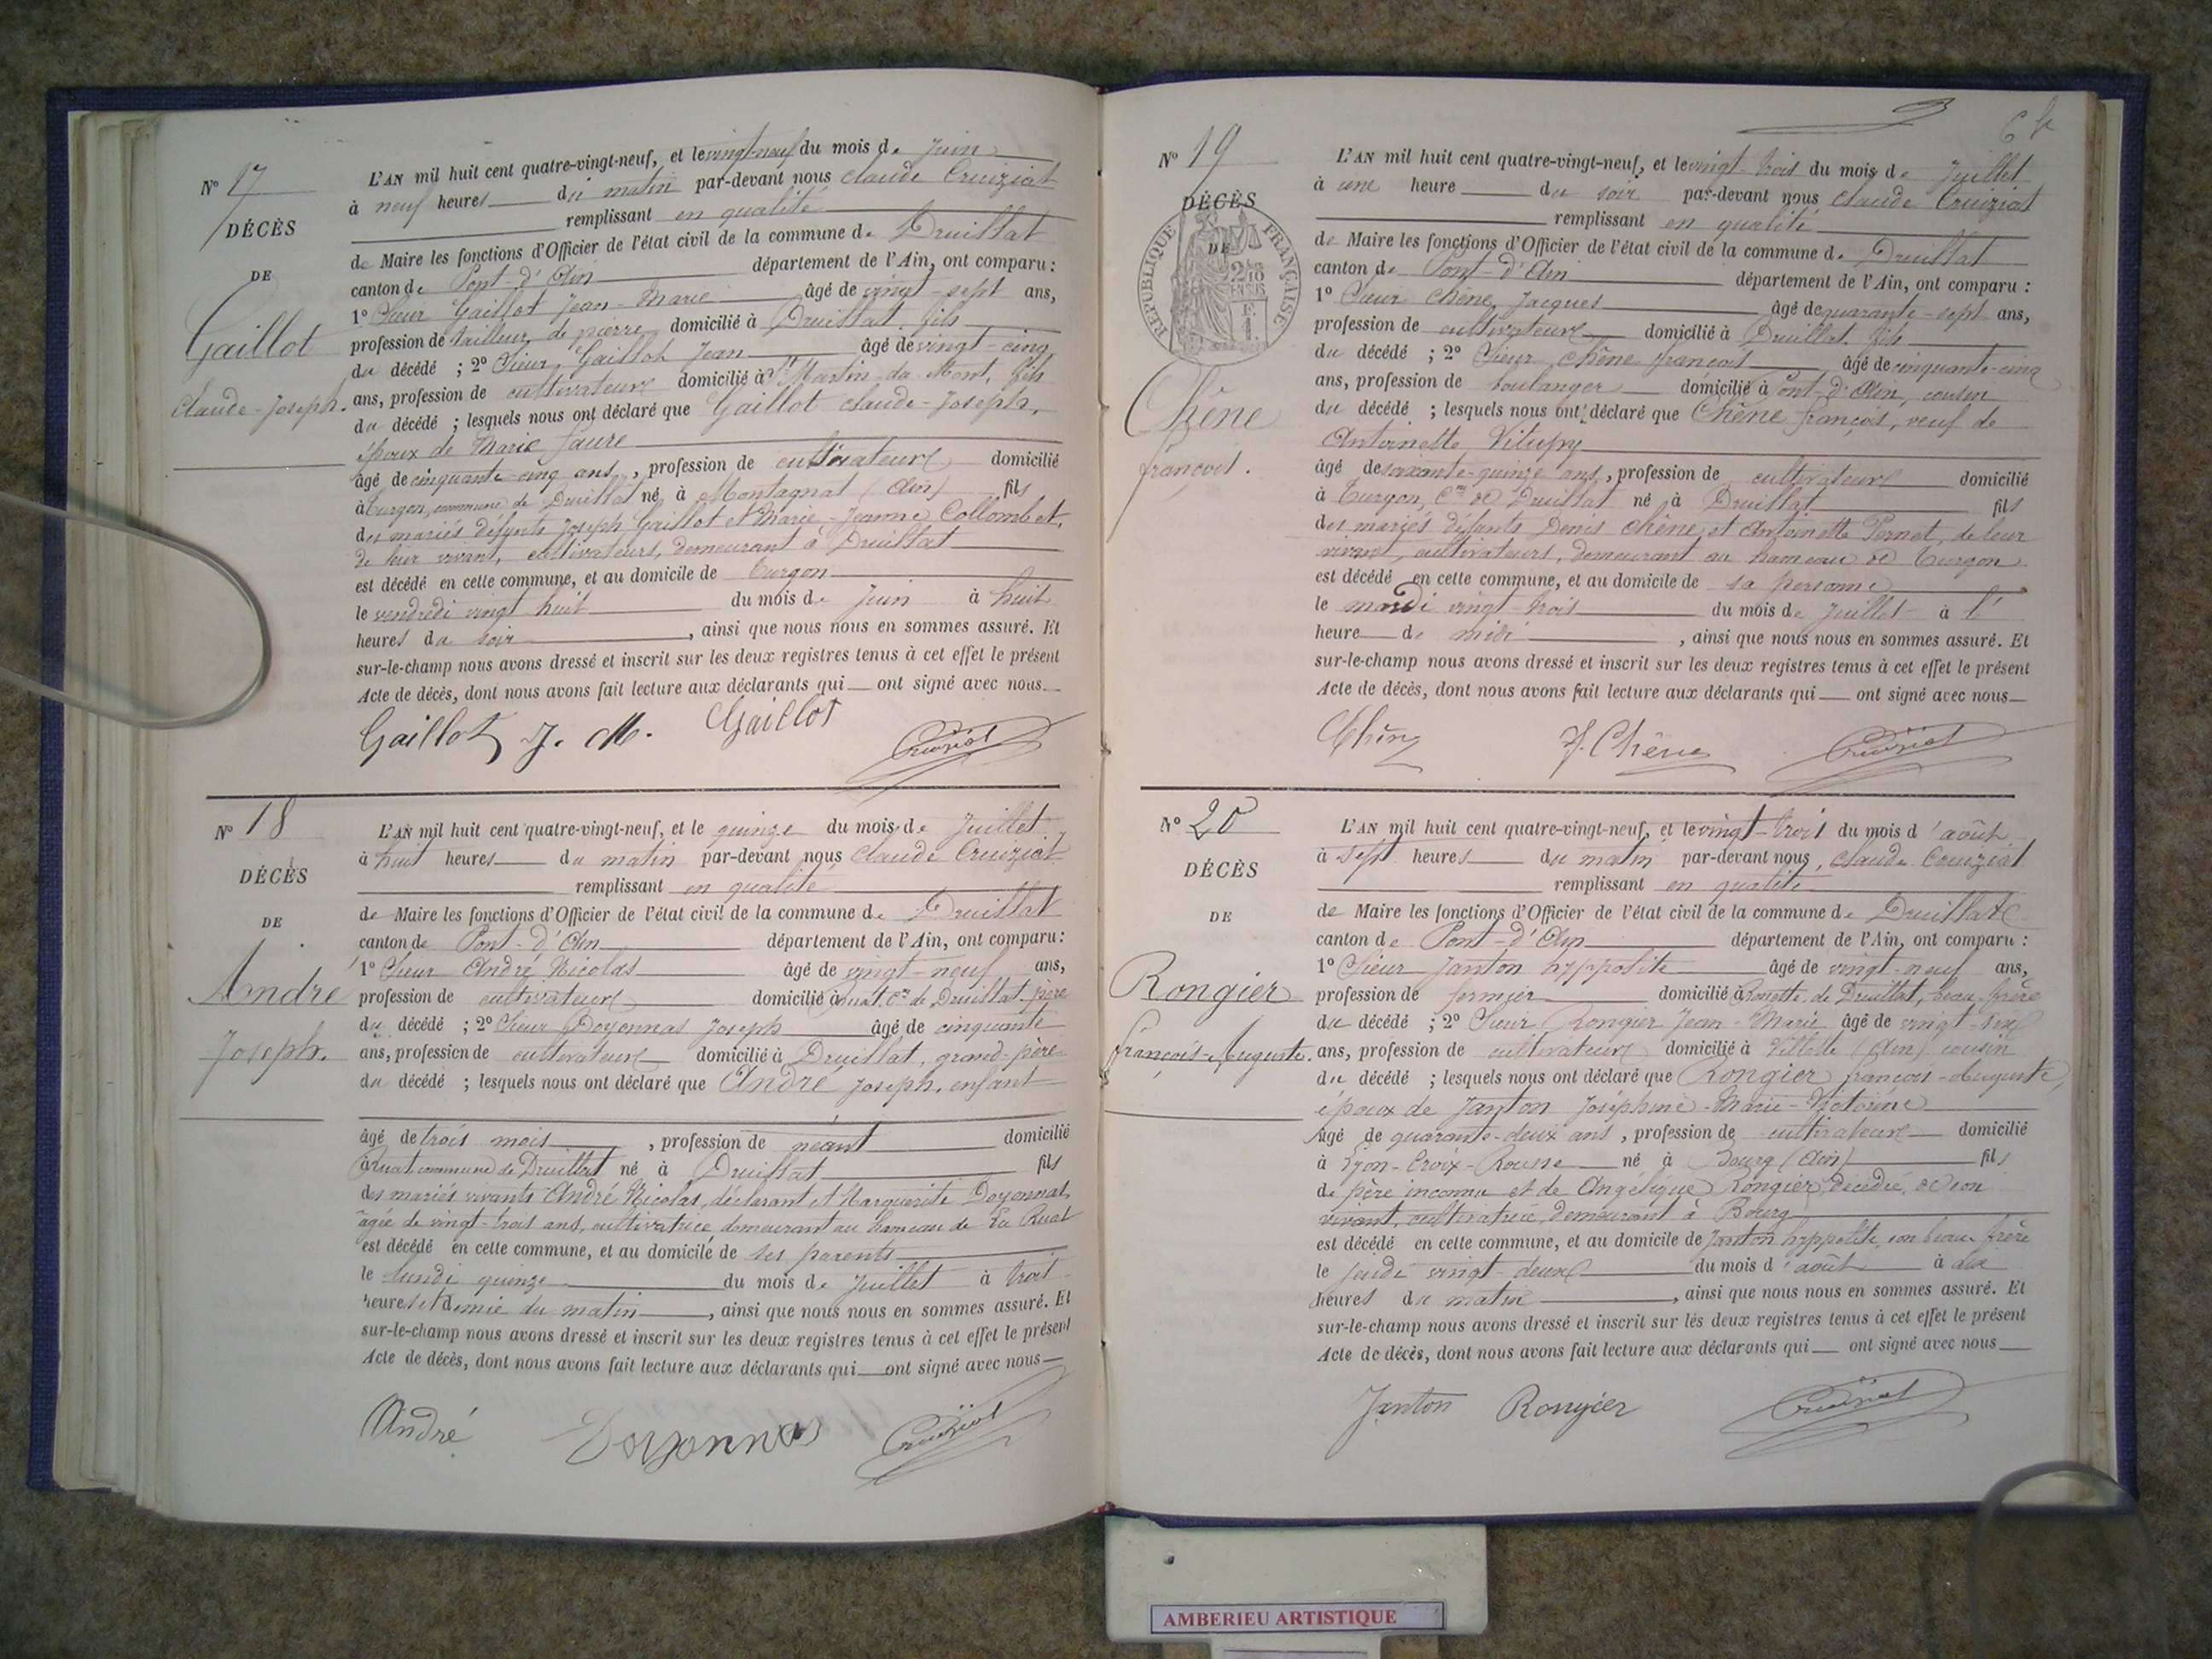 N° 17
DÉCÈS
DE
Gaillot
Claude-Joseph.
L'AN mil huit cent quatre-vingt-neuf, et le vingt-neuf du mois de Juin
à neuf heures du matin par-devant nous Claude Cruiziat
remplissant en qualité
de Maire les fonctions d'Officier de l'état civil de la commune de Druillat
canton de Pont-d'Ain département de l'Ain, ont comparu :
1° Sieur Gaillot Jean-Marie âgé de vingt-sept ans,
profession de tailleur de pierre domicilié à Druillat, fils
du décédé ; 2° Sieur Gaillot Jean âgé de vingt-cinq
ans, profession de cultivateur domicilié à St Martin-du-Mont, fils
du décédé ; lesquels nous ont déclaré que Gaillot Claude-Joseph,
époux de Marie Faure
âgé de cinquante-cinq ans, profession de cultivateur domicilié
à Turgon, commune de Druillat né à Montagnat (Ain) fils
des mariés défunts Joseph Gaillot et Marie-Jeanne Collombet,
de leur vivant, cultivateurs, demeurant à Druillat
est décédé en cette commune, et au domicile de Turgon
le vendredi vingt huit du mois de Juin à huit
heures du soir, ainsi que nous nous en sommes assuré. Et
sur-le-champ nous avons dressé et inscrit sur les deux registres tenus à cet effet le présent
Acte de décès, dont nous avons fait lecture aux déclarants qui ont signé avec nous
Gaillot J. M. Gaillot Cruiziat
N° 18
DÉCÈS
DE
André
Joseph.
L'AN mil huit cent quatre-vingt-neuf, et le quinze du mois de Juillet
à huit heures du matin par-devant nous Claude Cruiziat
remplissant en qualité
de Maire les fonctions d'Officier de l'état civil de la commune de Druillat
canton de Pont-d'Ain département de l'Ain, ont comparu :
1° Sieur André Nicolas âgé de vingt-neuf ans,
profession de cultivateur domicilié à Ruat, Cne de Druillat, père
du décédé ; 2° Sieur Doyonnas Joseph âgé de cinquante
ans, profession de cultivateur domicilié à Druillat, grand-père
du décédé ; lesquels nous ont déclaré que André Joseph, enfant
âgé de trois mois, profession de néant domicilié
à Ruat commune de Druillat né à Druillat fils
des mariés vivants André Nicolas, déclarant et Marguerite Doyonnas,
âgée de vingt-trois ans, cultivatrice, demeurant au hameau de La Ruat
est décédé en cette commune, et au domicile de ses parents
le lundi quinze du mois de Juillet à trois
heures et demie du matin, ainsi que nous nous en sommes assuré. Et
sur-le-champ nous avons dressé et inscrit sur les deux registres tenus à cet effet le présent
Acte de décès, dont nous avons fait lecture aux déclarants qui ont signé avec nous
André Doyonnas Cruiziat
N° 19
DÉCÈS
DE
RÉPUBLIQUE FRANÇAISE
Chêne
François.
L'AN mil huit cent quatre-vingt-neuf, et le vingt-trois du mois de Juillet
à une heure du soir par-devant nous Claude Cruiziat
remplissant en qualité
de Maire les fonctions d'Officier de l'état civil de la commune de Druillat
canton de Pont-d'Ain département de l'Ain, ont comparu :
1° Sieur Chêne Jacques âgé de quarante-sept ans,
profession de cultivateur domicilié à Druillat, fils
du décédé ; 2° Sieur Chêne François âgé de cinquante-cinq
ans, profession de boulanger domicilié à Pont-d'Ain, cousin
du décédé ; lesquels nous ont déclaré que Chêne François, veuf de
Antoinette Vitupry
âgé de soixante-quinze ans, profession de cultivateur domicilié
à Turgon, Cne de Druillat né à Druillat fils
des mariés défunts Denis Chêne et Antoinette Pernet, de leur
vivant, cultivateurs, demeurant au hameau de Turgon
est décédé en cette commune, et au domicile de sa personne
le mardi vingt-trois du mois de Juillet à l'
heure de midi, ainsi que nous nous en sommes assuré. Et
sur-le-champ nous avons dressé et inscrit sur les deux registres tenus à cet effet le présent
Acte de décès, dont nous avons fait lecture aux déclarants qui ont signé avec nous
Chêne F. Chêne Cruiziat
N° 20
DÉCÈS
DE
Rongier
François-Auguste.
L'AN mil huit cent quatre-vingt-neuf, et le vingt-trois du mois d'août
à sept heures du matin par-devant nous, Claude Cruiziat
remplissant en qualité
de Maire les fonctions d'Officier de l'état civil de la commune de Druillat
canton de Pont-d'Ain département de l'Ain, ont comparu :
1° Sieur Janton hyppolite âgé de vingt-neuf ans,
profession de fermier domicilié à de Druillat, beau-frère
du décédé ; 2° Sieur Rongier Jean-Marie âgé de vingt-six
ans, profession de cultivateur domicilié à Villette (Ain) cousin
du décédé ; lesquels nous ont déclaré que Rongier François-Auguste,
époux de Janton Joséphine-Marie-Victorine
âgé de quarante-deux ans, profession de cultivateur domicilié
à Lyon-Croix-Rousse né à Bourg (Ain) fils
de père inconnu et de Angélique Rongier, décédée, de son
vivant, cultivatrice, demeurant à Bourg
est décédé en cette commune, et au domicile de Janton hyppolite, son beau-frère
le jeudi vingt-deux du mois d'août à dix
heures du matin, ainsi que nous nous en sommes assuré. Et
sur-le-champ nous avons dressé et inscrit sur les deux registres tenus à cet effet le présent
Acte de décès, dont nous avons fait lecture aux déclarants qui ont signé avec nous
Janton Rongier Cruiziat
AMBERIEU ARTISTIQUE